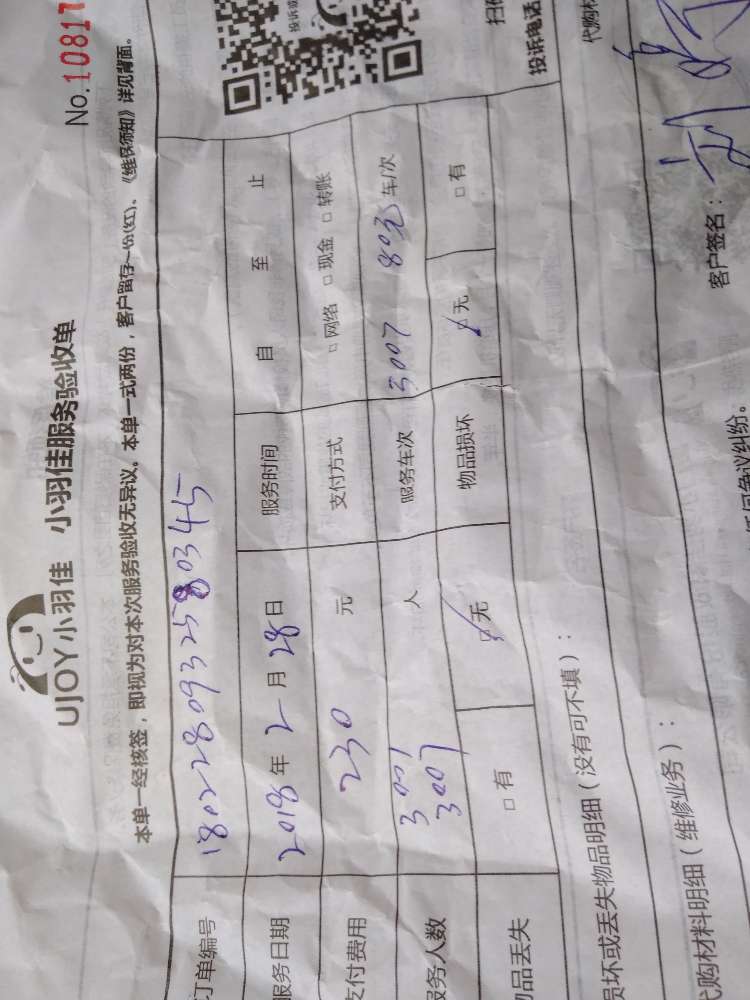 No.10817
UJOY小羽佳 小羽佳服务验收单
本单一经核签,即视为对本次服务验收无异议。本单一式两份,客户留存一份(红)。《维权须知》详见背面。
订单编号 1802280932580345
服务日期 2018年2月28日 服务时间 自 至 止
支付费用 230 元 支付方式 □网络 □现金 □转账
服务人数 3001 3007 人 服务车次 3007 80元 车/次
物品丢失 □有 □无 物品损坏 □无 □有
损坏或丢失物品明细(没有可不填):
代购材料明细(维修业务):
投诉电话
客户签名:
争议纠纷。